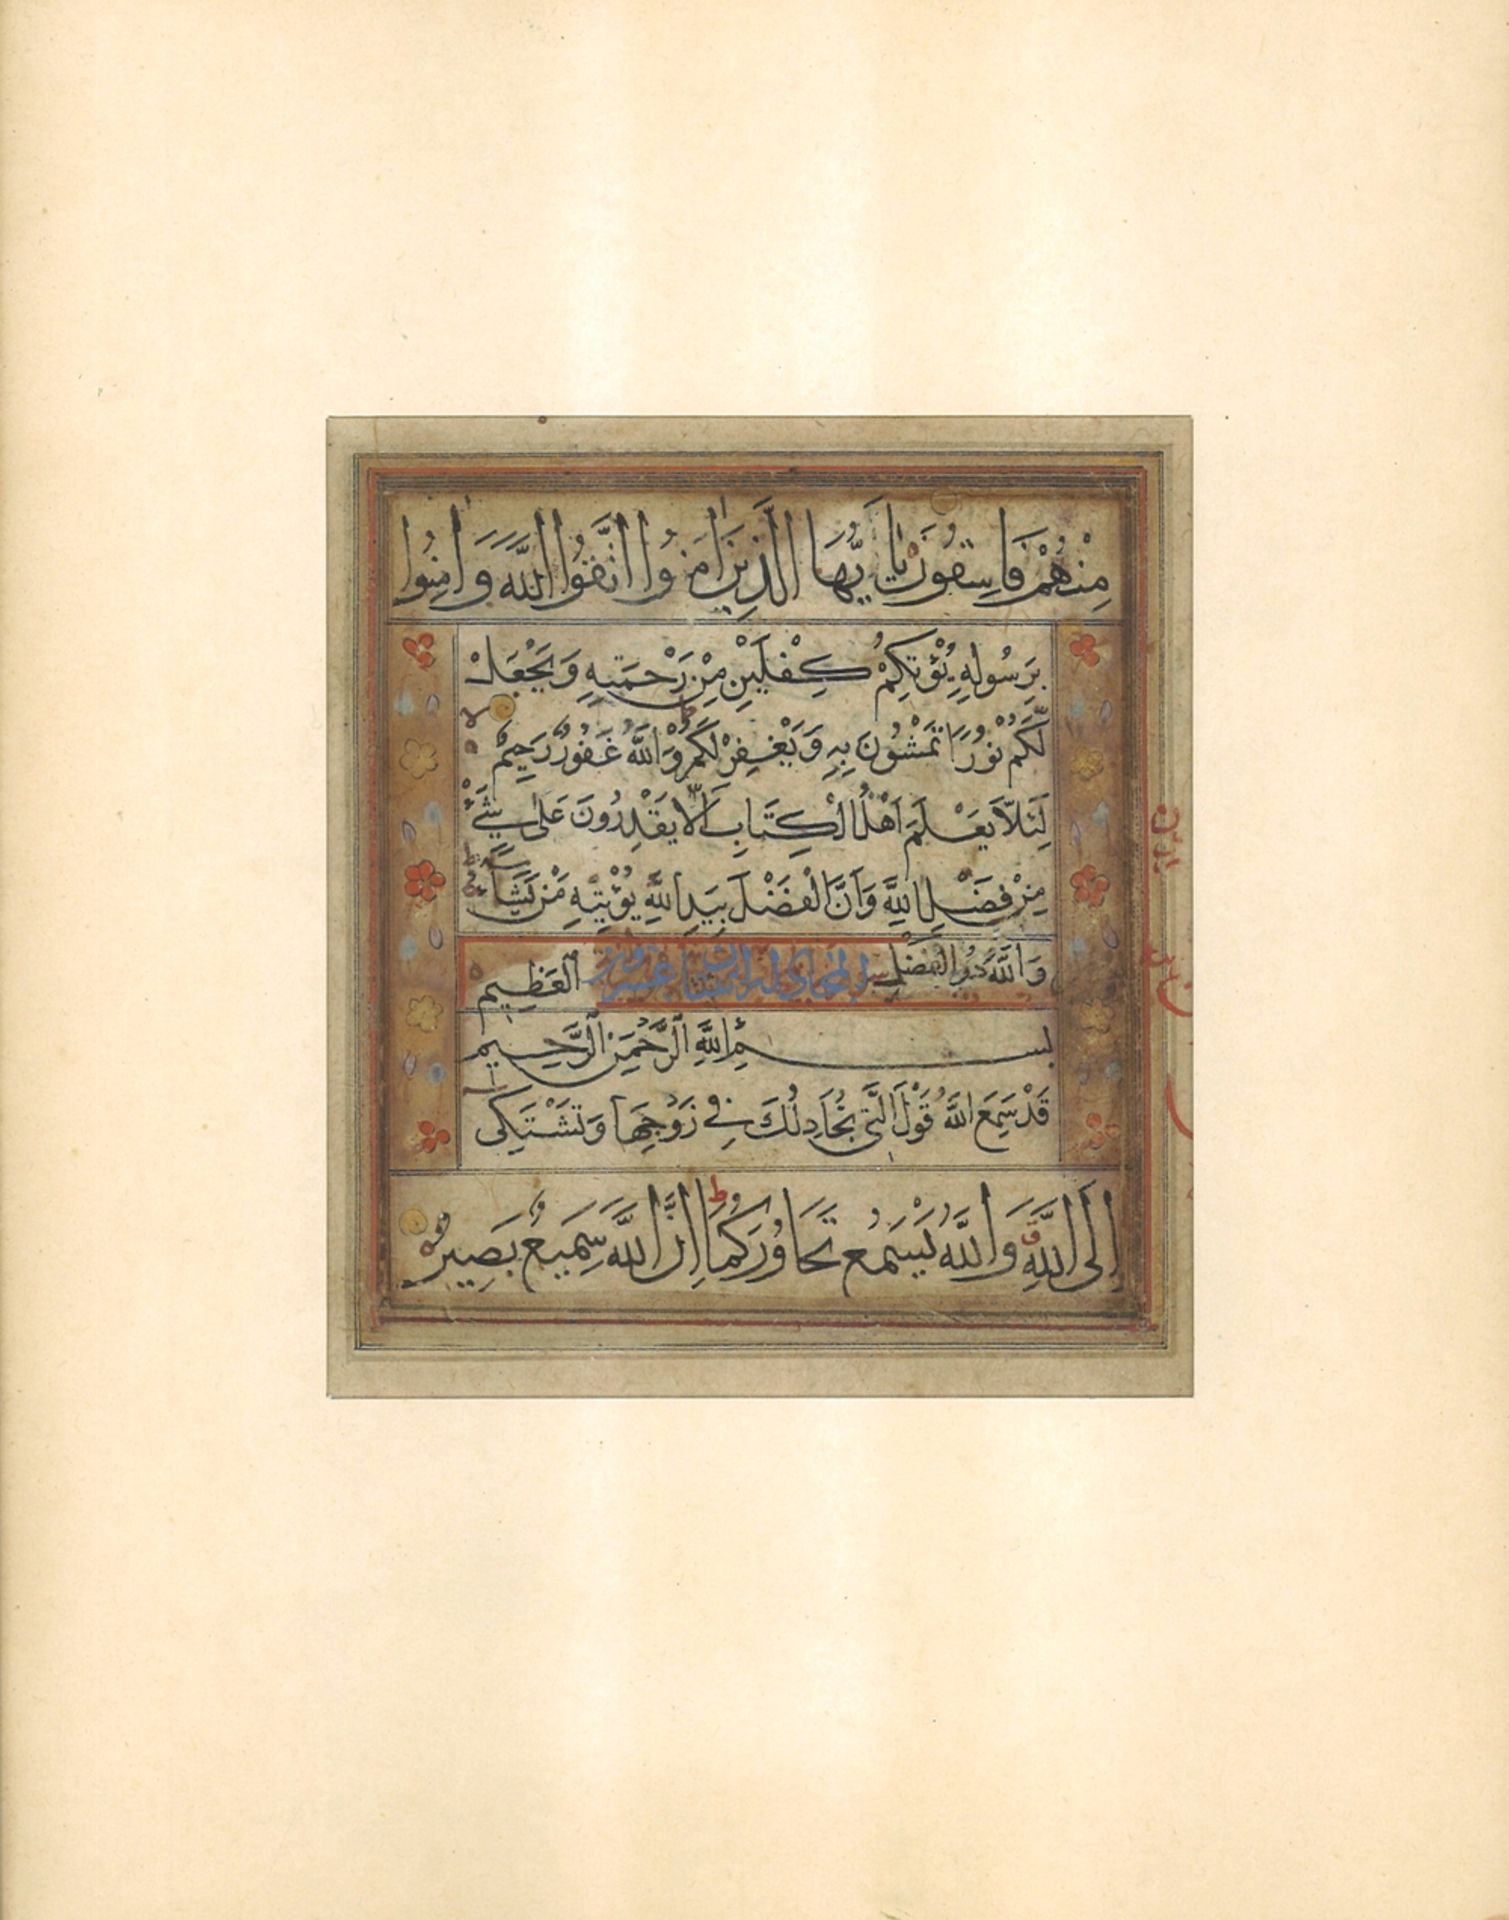 مِنْهُمْ فَاسِقُونَ يَا يُّهَا الَّذِينَ اٰمَنُوا اتَّقُوا اللَّهَ وَاٰمِنُوا
بِرَسُولِهِ يُؤْتِكُمْ كِفْلَيْنِ مِنْ رَحْمَتِهِ وَيَجْعَلْ
لَكُمْ نُورًا تَمْشُونَ بِهِ وَيَغْفِرْ لَكُمْ وَاللَّهُ غَفُورٌ رَحِيمٌ
لِئَلَّا يَعْلَمَ اَهْلُ الْكِتَابِ اَلَّا يَقْدِرُونَ عَلٰى شَيْءٍ
مِنْ فَضْلِ اللَّهِ وَاَنَّ الْفَضْلَ بِيَدِ اللَّهِ يُؤْتِيهِ مَنْ يَشَاءُ
وَاللَّهُ ذُو الْفَضْلِ الْعَظِيمِ
بِسْمِ اللَّهِ الرَّحْمٰنِ الرَّحِيمِ
قَدْ سَمِعَ اللَّهُ قَوْلَ الَّتِي تُجَادِلُكَ فِي زَوْجِهَا وَتَشْتَكِي
اِلَى اللَّهِ وَاللَّهُ يَسْمَعُ تَحَاوُرَكُمَا اِنَّ اللَّهَ سَمِيعٌ بَصِيرٌ